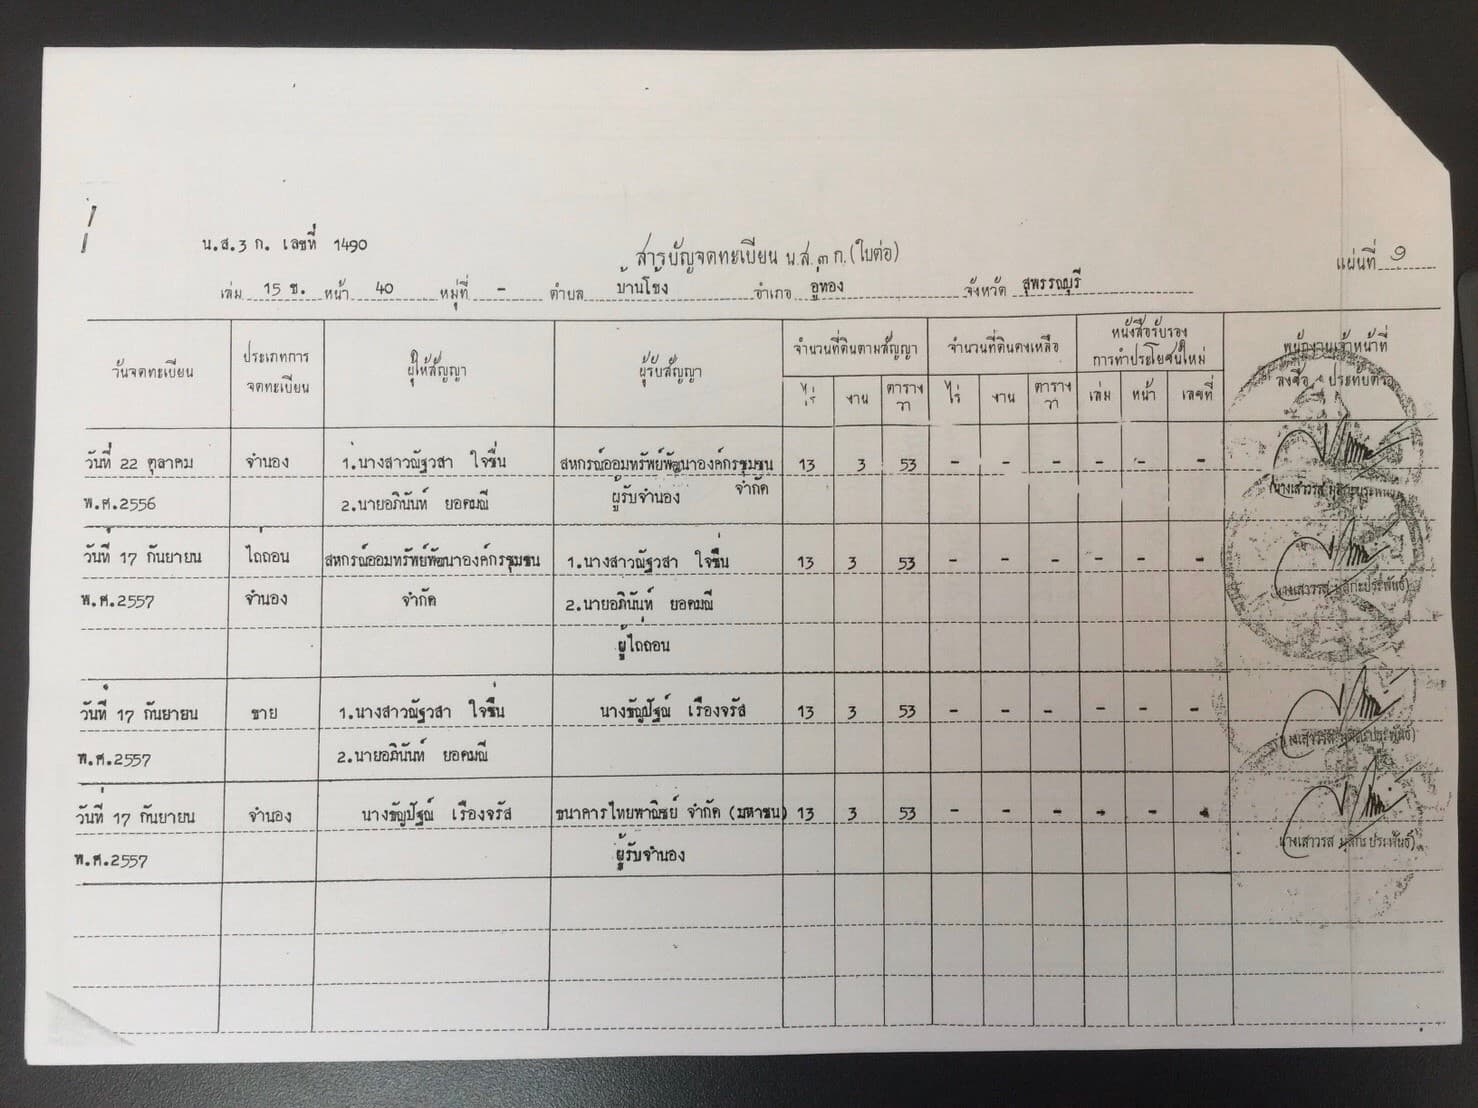 น.ส.3 ก. เลขที่ 1490
สารบัญจดทะเบียน น.ส.๓ ก.(ใบต่อ)
แผ่นที่ 9
เล่ม 15 ช. หน้า 40 หมู่ที่ - ตำบล บ้านโข้ง อำเภอ อู่ทอง จังหวัด สุพรรณบุรี
วันจดทะเบียน ประเภทการจดทะเบียน ผู้ให้สัญญา ผู้รับสัญญา จำนวนที่ดินตามสัญญา จำนวนที่ดินคงเหลือ หนังสือรับรองการทำประโยชน์ใหม่ พนักงานเจ้าหน้าที่
ไร่ งาน ตารางวา ไร่ งาน ตารางวา เล่ม หน้า เลขที่ ลงชื่อ ประทับตรา
วันที่ 22 ตุลาคม จำนอง 1.นางสาวณัฐวสา ใจชื่น สหกรณ์ออมทรัพย์พัฒนาองค์กรชุมชน 13 3 53 - - - - - -
จำกัด
พ.ศ.2556 2.นายอภินันท์ ยอดมณี ผู้รับจำนอง
วันที่ 17 กันยายน ไถ่ถอน สหกรณ์ออมทรัพย์พัฒนาองค์กรชุมชน 1.นางสาวณัฐวสา ใจชื่น 13 3 53 - - - - - -
พ.ศ.2557 จำนอง จำกัด 2.นายอภินันท์ ยอดมณี
ผู้ไถ่ถอน
วันที่ 17 กันยายน ขาย 1.นางสาวณัฐวสา ใจชื่น นางชัญปัฐณ์ เรืองจรัส 13 3 53 - - - - - -
พ.ศ.2557 2.นายอภินันท์ ยอดมณี
วันที่ 17 กันยายน จำนอง นางชัญปัฐณ์ เรืองจรัส ธนาคารไทยพาณิชย์ จำกัด (มหาชน) 13 3 53 - - - - - -
พ.ศ.2557 ผู้รับจำนอง